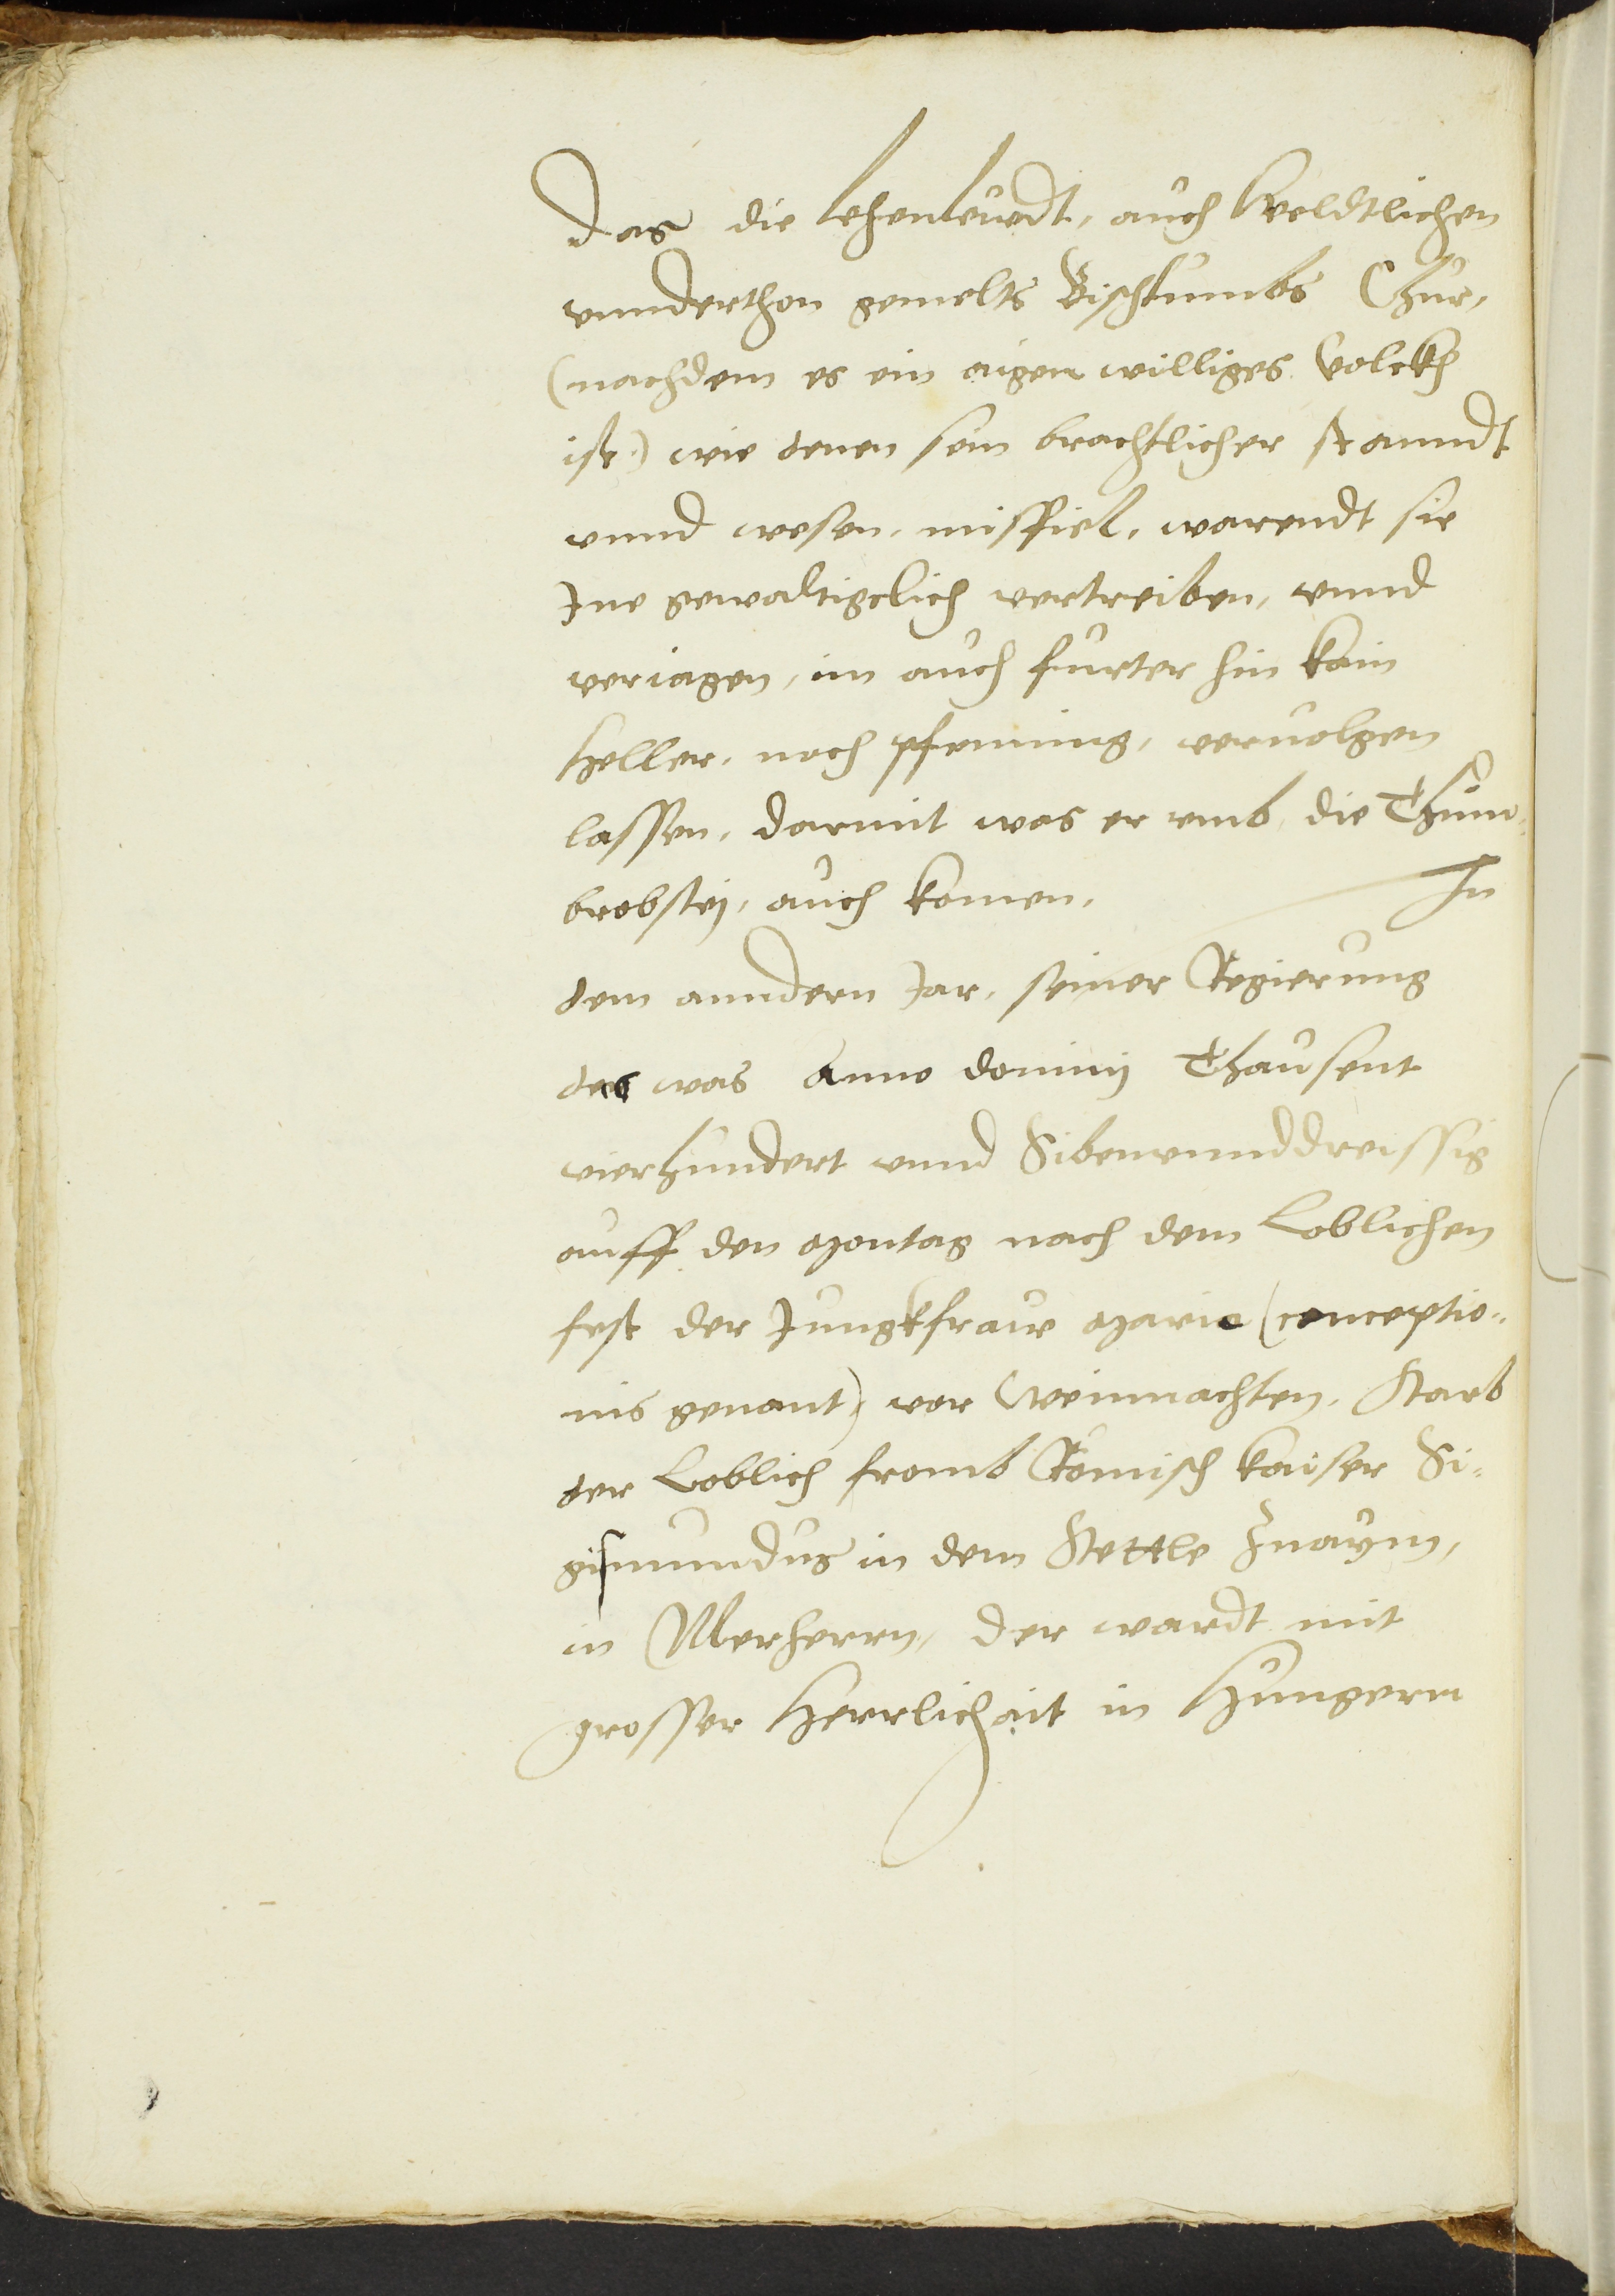 das die Lehenleuedt, auch Weldtlichen
vnnderthon gemelts Bischtumbs Chur,
(nachdem es ein aigen williges Volckh
ist) wie denen sein brachtlicher stanndt
vnnd wesen, missfiel, warendt sie
Jne gewaltigclich vertreiben, vnnd
veriagen, im auch furter hin kain
Heller, noch pfenning, veruolgen
lassen, darmit was er vmb die Thum¬
brobstej, auch komen. In
dem anndern Jar, seiner Regierung
das was Anno dominj Thausent
vierhundert vnnd Sibenvnnddreissig
auff den Montag nach dem Loblichen
fest der Jungkfraw Marie (conceptio¬
nis genant) vor Weinnachten, Starb
der Loblich fromb Römisch kaiser Si¬
gismundus in dem Stettle Znaym,
in Merherrn, der wardt mit
grosser Herrlichait in Hungern